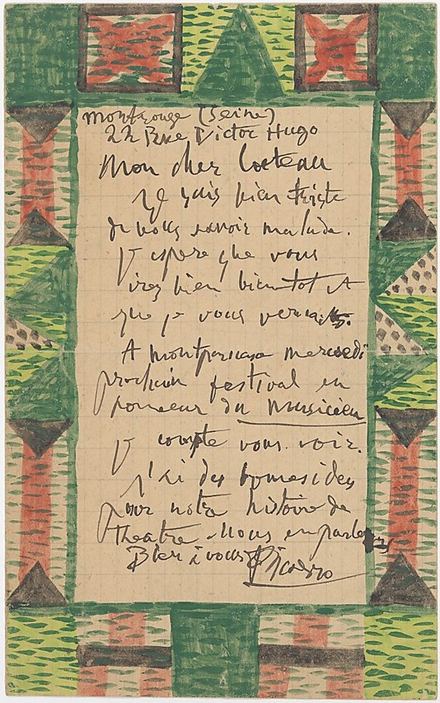 Montrouge (Seine)
22 Rue Victor Hugo
Mon cher Cocteau
Je suis bien triste
de vous savoir malade.
J'espere que vous
irez bien bientot et
que je vous verrai.
A Montparnasse mercredi
prochain festival en
honneur du musicien
je compte vous voir.
J'ai des bonnes idees
pour notre histoire de
theatre - Nous en parlerons
Bien à vous Picasso